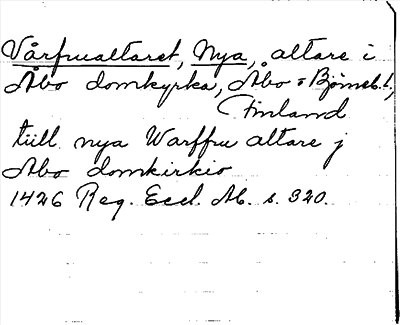 Vårfrualtaret, Nya, altare i
Åbo domkyrka, Åbo o Björneb. l,
Finland
tiill nya Warffru altare j
Abo domkirkio
1426 Reg. Eccl. Ab. s. 320.